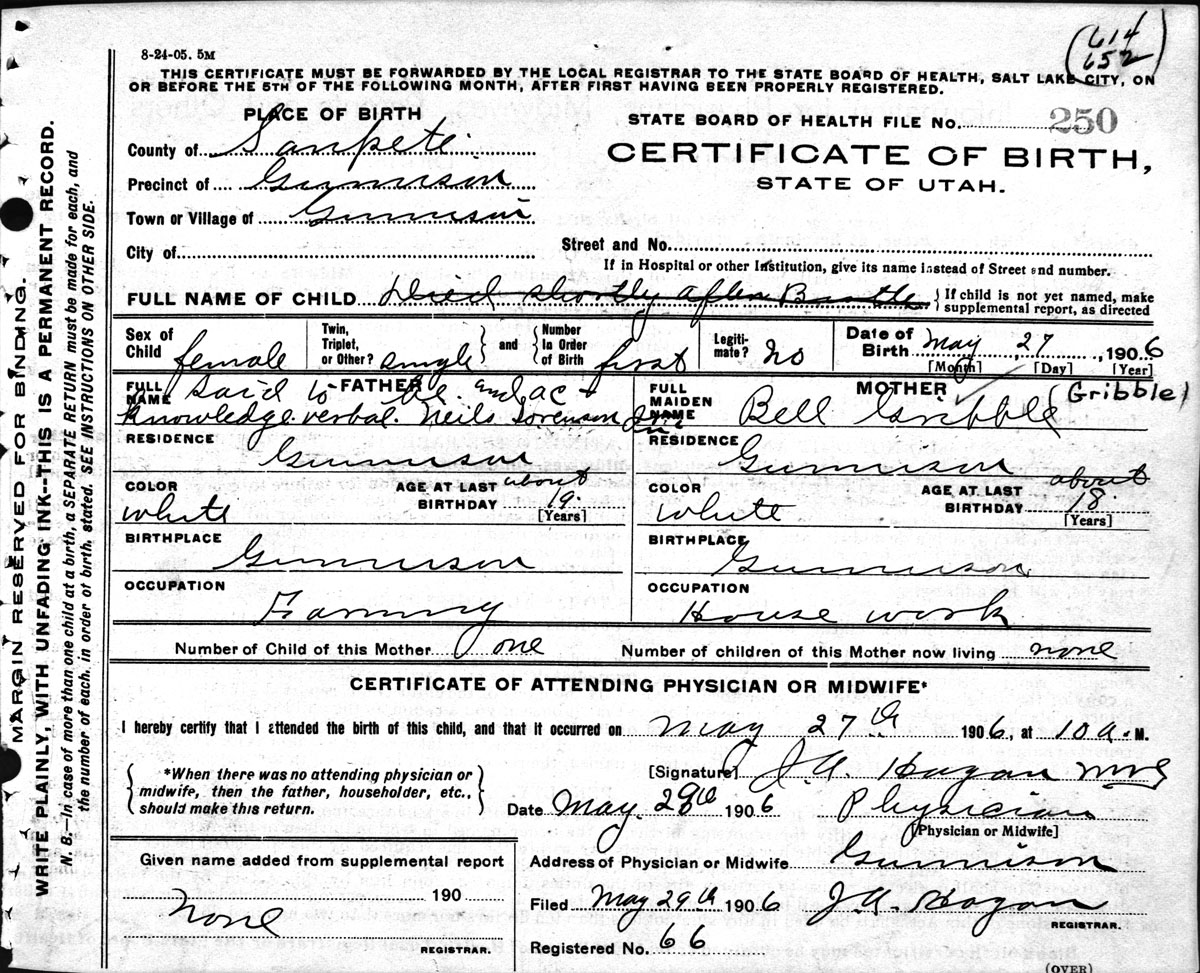 614
652
8-24-05. 5M
THIS CERTIFICATE MUST BE FORWARDED BY THE LOCAL REGISTRAR TO THE STATE BOARD OF HEALTH, SALT LAKE CITY, ON
OR BEFORE THE 5TH OF THE FOLLOWING MONTH, AFTER FIRST HAVING BEEN PROPERLY REGISTERED.
PLACE OF BIRTH
STATE BOARD OF HEALTH FILE No. 250
County of Sanpete
CERTIFICATE OF BIRTH,
Precinct of Gunnison
STATE OF UTAH.
Town or Village of Gunnison
City of
Street and No.
If in Hospital or other Institution, give its name instead of Street and number.
FULL NAME OF CHILD Died shortly after Birth { If child is not yet named, make supplemental report, as directed
Sex of Child female
Twin, Triplet, or Other? single } and { Number in Order of Birth first
Legitimate? no
Date of Birth May 27, 1906
[Month] [Day] [Year]
FULL NAME FATHER Said to be and ac-
knowledge verbal. Neils Sorenson Jn
FULL MAIDEN NAME MOTHER Bell Gribble (Gribble)
RESIDENCE Gunnison
RESIDENCE Gunnison
COLOR white AGE AT LAST BIRTHDAY about 19. [Years]
COLOR white AGE AT LAST BIRTHDAY about 18 [Years]
BIRTHPLACE Gunnison
BIRTHPLACE Gunnison
OCCUPATION Farming
OCCUPATION House work
Number of Child of this Mother one Number of children of this Mother now living none
CERTIFICATE OF ATTENDING PHYSICIAN OR MIDWIFE*
I hereby certify that I attended the birth of this child, and that it occurred on May 27th 1906, at 10 a. M.
{ *When there was no attending physician or midwife, then the father, householder, etc., should make this return. }
[Signature] J.A. Hagan
Date May. 28th 1906 Physician
[Physician or Midwife]
Given name added from supplemental report
190
None
REGISTRAR.
Address of Physician or Midwife Gunnison
Filed May 29th 1906 J.A. Hagan
REGISTRAR.
Registered No. 66
(OVER)
MARGIN RESERVED FOR BINDING.
WRITE PLAINLY, WITH UNFADING INK--THIS IS A PERMANENT RECORD.
N. B.—In case of more than one child at a birth, a SEPARATE RETURN must be made for each, and
the number of each, in order of birth, stated. SEE INSTRUCTIONS ON OTHER SIDE.